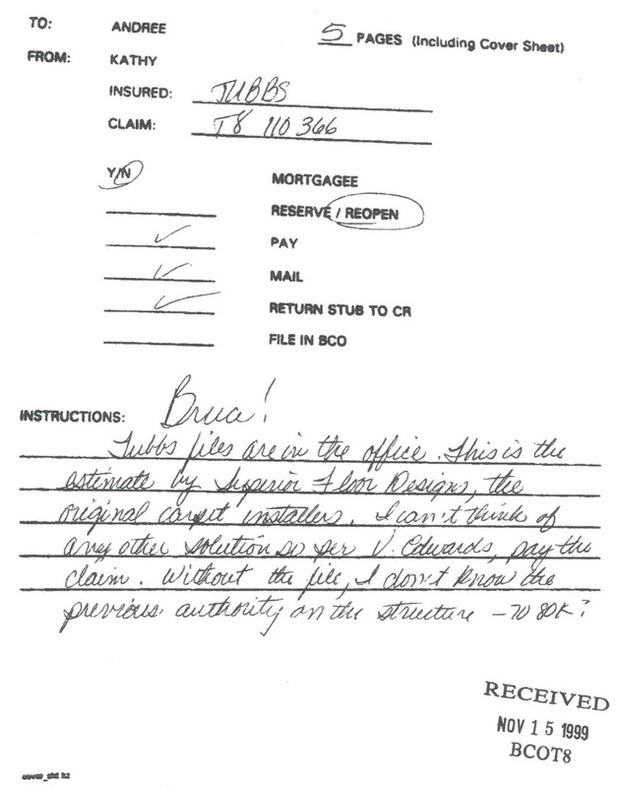 TO: ANDREE
5 PAGES (Including Cover Sheet)
FROM: KATHY
INSURED: TUBBS
CLAIM: T8 110 366
Y/N MORTGAGEE
RESERVE / REOPEN
✓ PAY
✓ MAIL
✓ RETURN STUB TO CR
FILE IN BCO
INSTRUCTIONS: Bruce!
Tubbs files are in the office. This is the
estimate by Superior Floor Designs, the
original carpet installers. I can't think of
any other solution so per V. Edwards, pay the
claim. Without the file, I don't know the
previous authority on the structure - 70 80K?
RECEIVED
NOV 15 1999
BCOT8